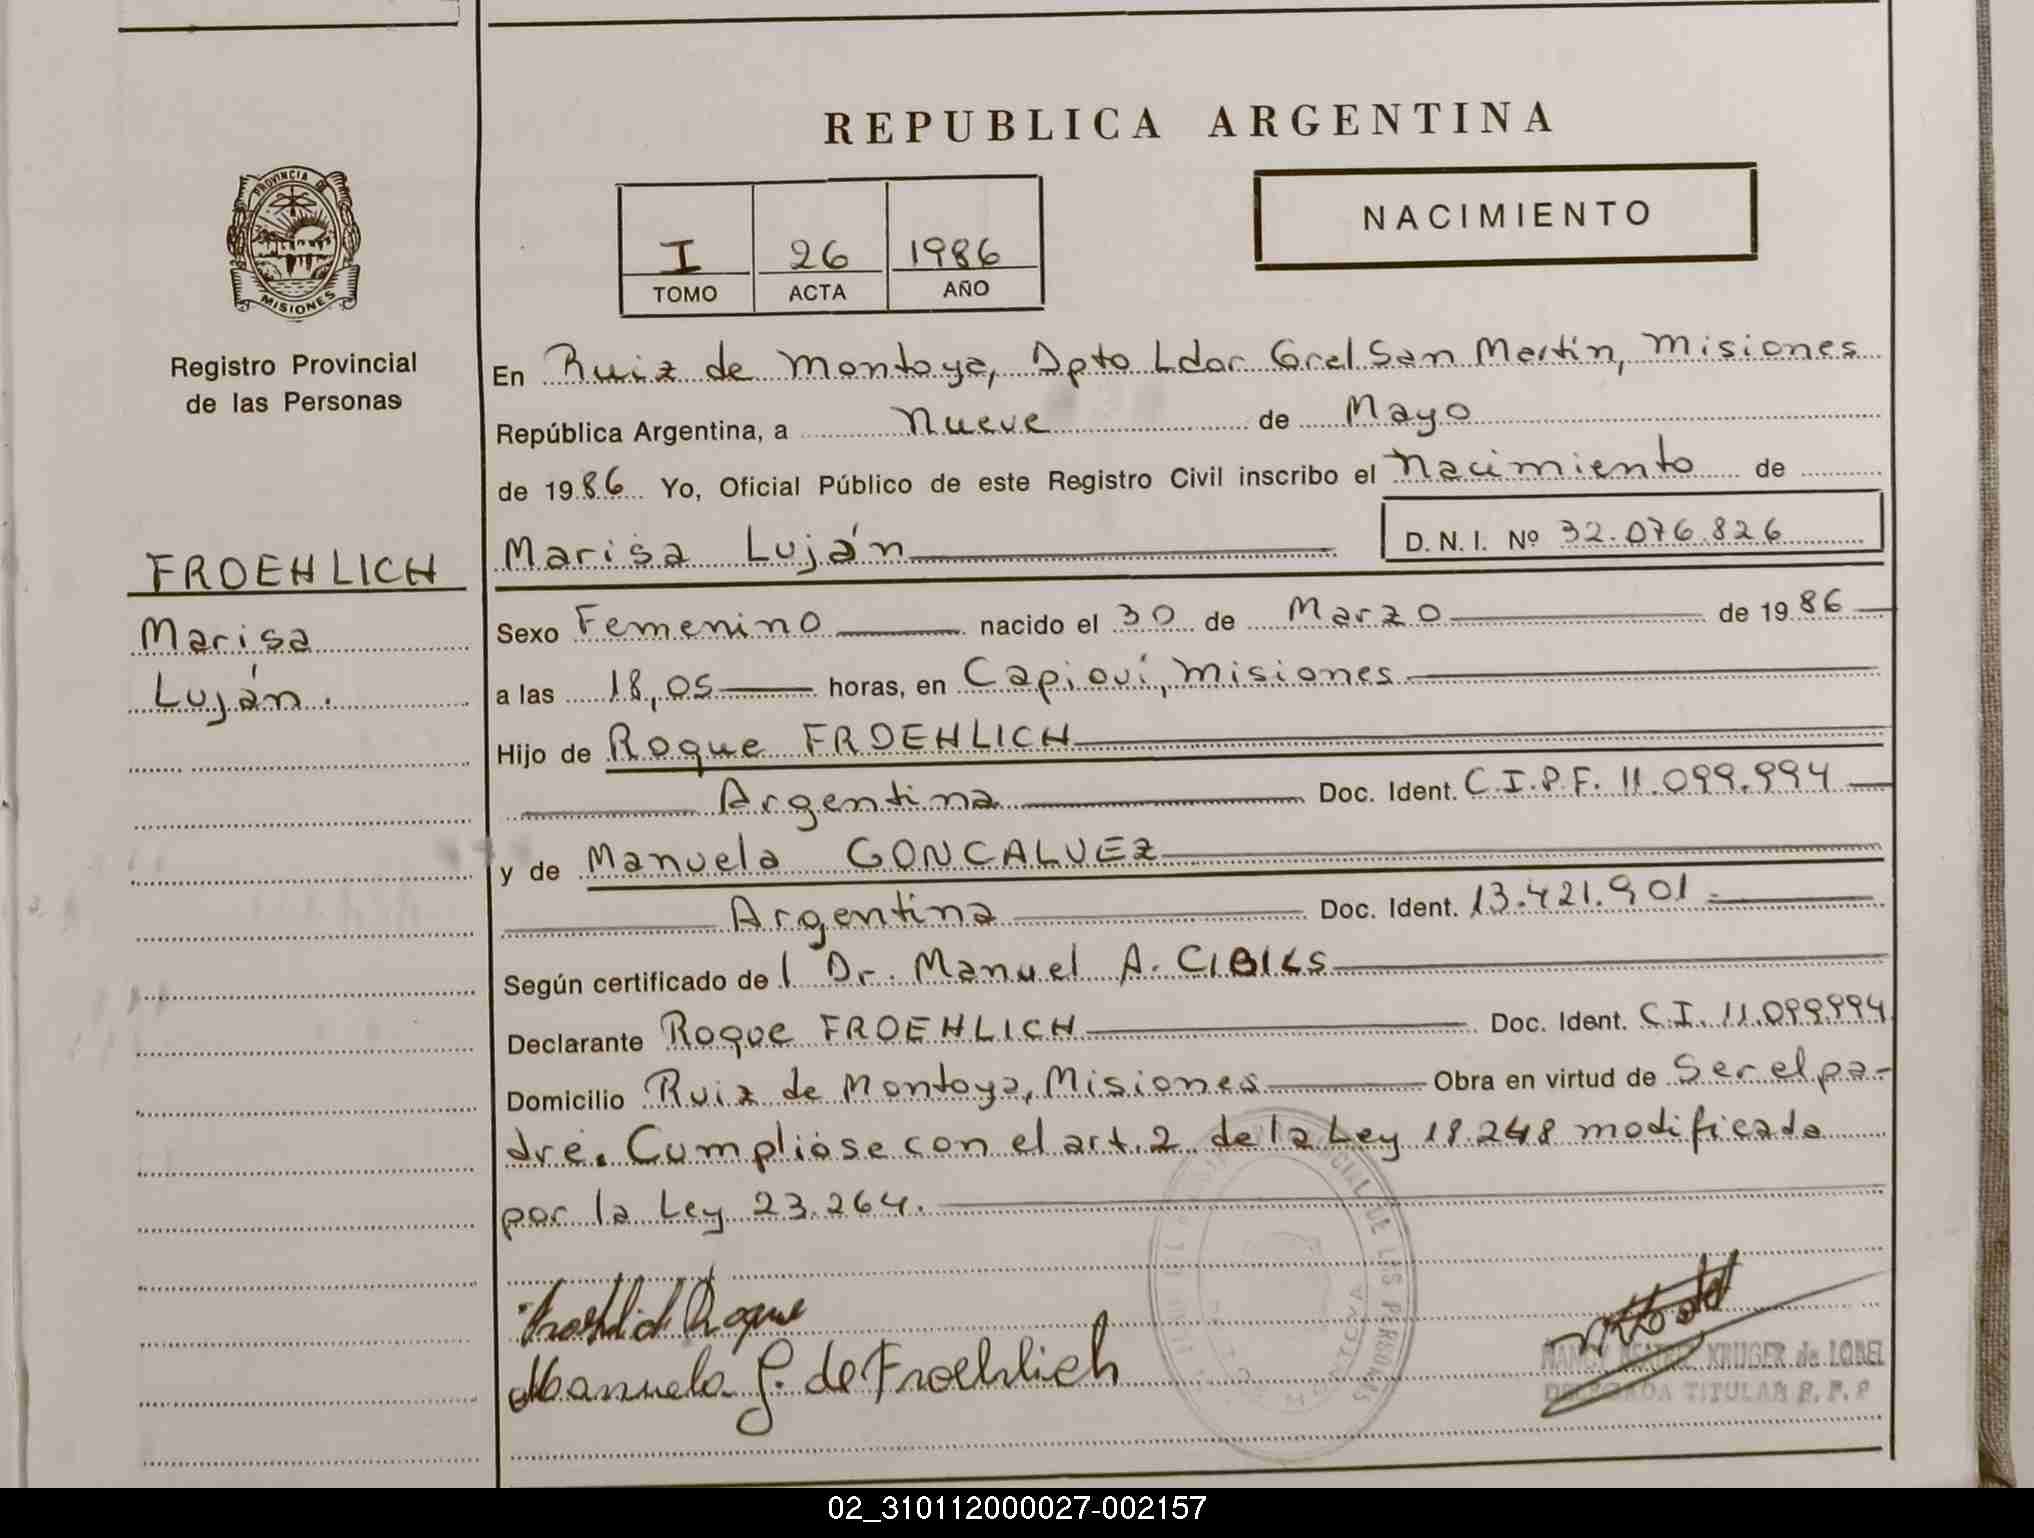 REPUBLICA ARGENTINA
PROVINCIA DE
MISIONES
Registro Provincial
de las Personas
I 26 1986
TOMO ACTA AÑO
NACIMIENTO
En Ruiz de Montoya, Dpto Ldor Gral San Martín, Misiones
República Argentina, a Nueve de Mayo
de 1986 Yo, Oficial Público de este Registro Civil inscribo el Nacimiento de
Marisa Luján D.N.I. Nº 32.076.826
FROEHLICH
Marisa
Luján.
Sexo Femenino nacido el 30 de Marzo de 1986
a las 18,05 horas, en Capioví, Misiones
Hijo de Roque FROEHLICH
Argentina Doc. Ident. C.I.P.F. 11.099.994
y de Manuela GONCALVEZ
Argentina Doc. Ident. 13.421.901.-
Según certificado del Dr. Manuel A. CIBILS
Declarante Roque FROEHLICH Doc. Ident. C.I. 11.099994
Domicilio Ruiz de Montoya, Misiones Obra en virtud de Ser el pa-
dre. Cumplióse con el art. 2 de la Ley 18.248 modificada
por la Ley 23.264.
Froehlich Roque
Manuela G. de Froehlich
KRUGER de LOBEL
DELEGADA TITULAR R.P.P
02_310112000027-002157